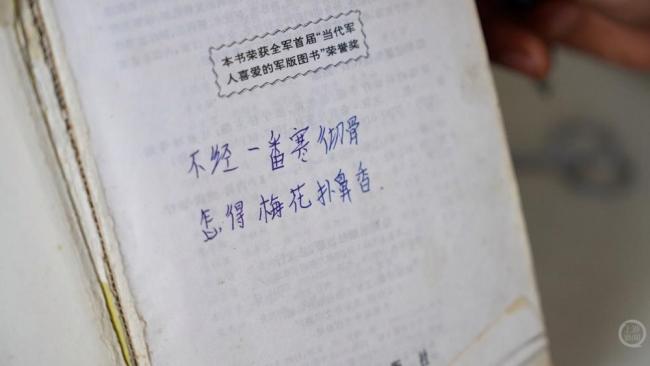 本书荣获全军首届“当代军
人喜爱的军版图书”荣誉奖
不经一番寒彻骨
怎得梅花扑鼻香.
社